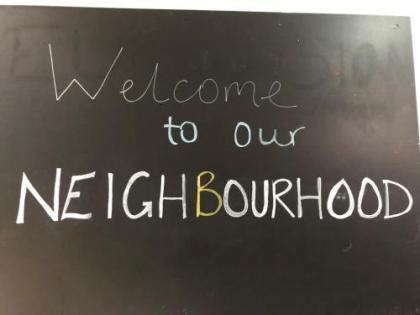 Welcome
to our
NEIGHBOURHOOD